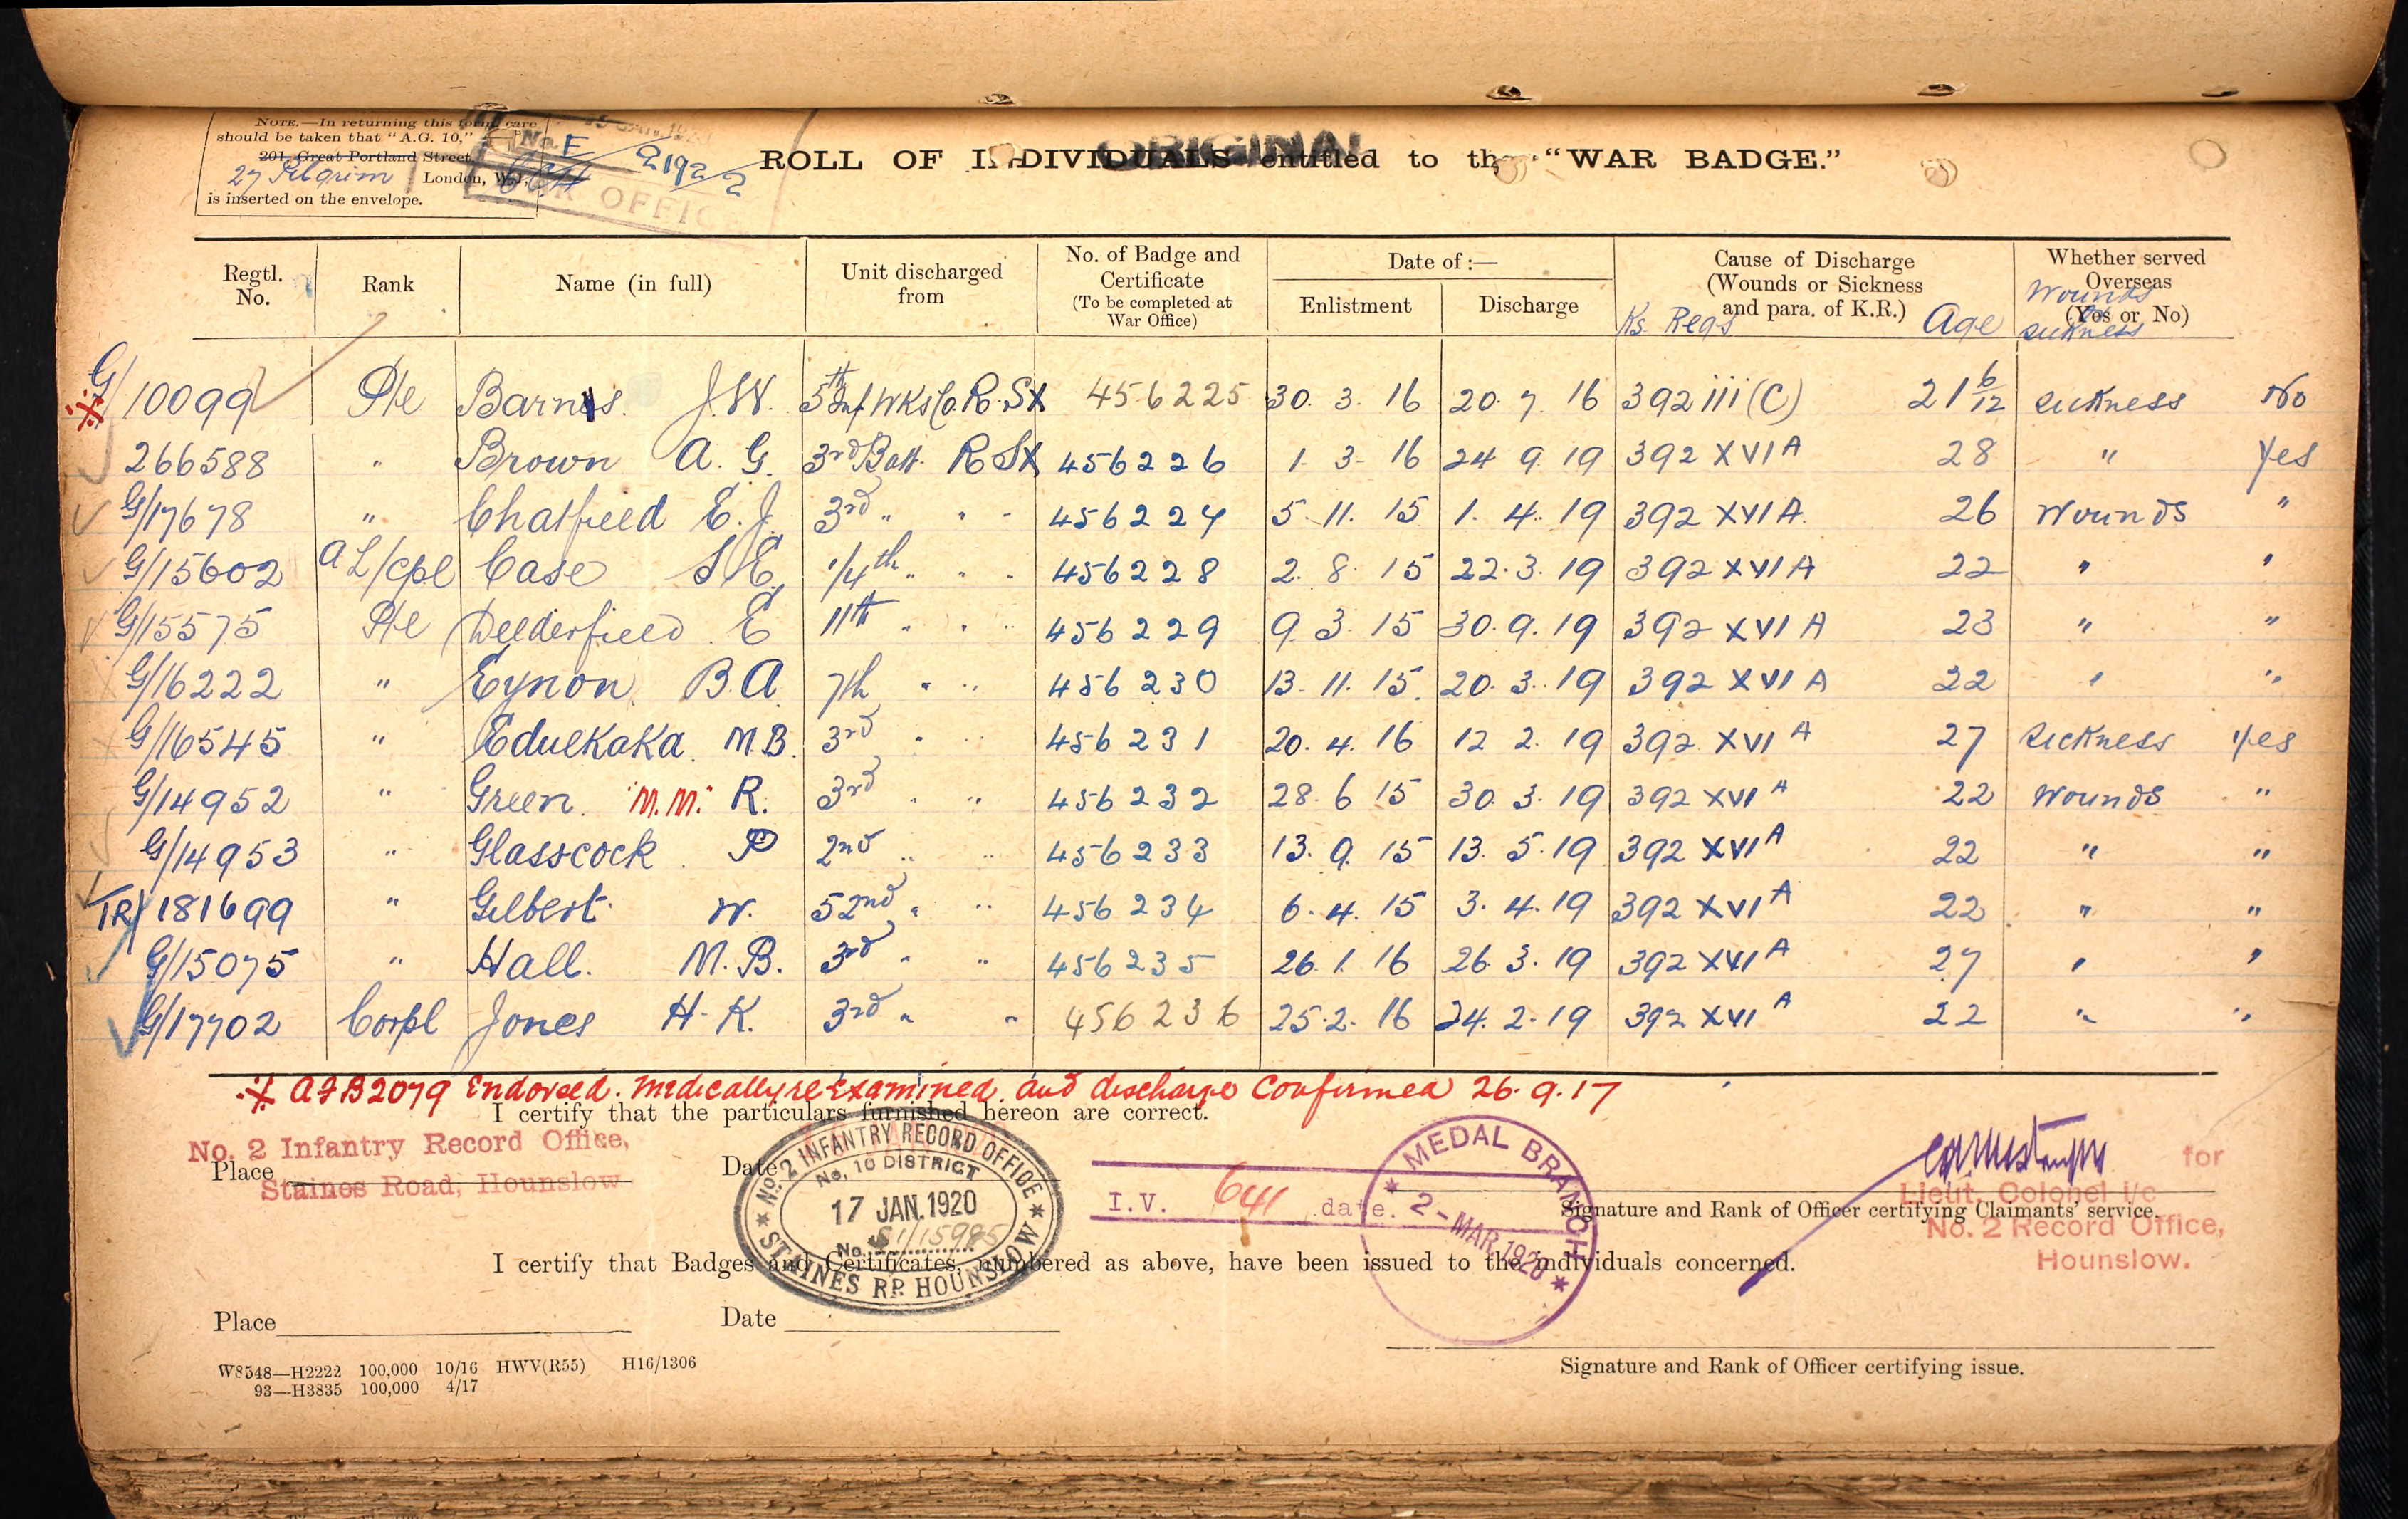 NOTE.—In returning this form, care
should be taken that "A.G. 10,"
201, Great Portland Street
27 Pilgrim London, W.1,
is inserted on the envelope.
No. E
2192/2
ORIGINAL
ROLL OF INDIVIDUALS entitled to the "WAR BADGE."
Regtl. No. Rank Name (in full) Unit discharged from No. of Badge and Certificate (To be completed at War Office) Date of:— Enlistment Discharge Cause of Discharge (Wounds or Sickness and para. of K.R.) Ks Regs Age Whether served Overseas (Yes or No) Wounds or Sickness
G/10099 Pte Barnes. J.W. 5th Inf Wks Co. R. Sx 456225 30. 3. 16 20. 7. 16 392 iii (C) 21 6/12 Sickness No
266588 " Brown A. G. 3rd Batt. R Sx 456226 1 3 16 24 9 19 392 XVI A 28 " Yes
G/17678 " Chatfield E. J. 3rd " " " 456227 5 11. 15 1. 4. 19 392 XVI A. 26 Wounds "
G/15602 A L/Cpl Case S E. 1/4th " " " 456228 2. 8. 15 22. 3. 19 392 XVI A 22 " "
G/15575 Pte Deederfield E 11th " " " 456229 9. 3. 15 30. 9. 19 392 XVI A 23 " "
G/16222 " Eynon B. A. 7th " " 456230 13. 11. 15. 20. 3. 19 392 XVI A 22 " "
G/16545 " Eduekaka. M.B. 3rd " " 456231 20. 4. 16 12 2. 19 392 XVI A 27 Sickness Yes
G/14952 " Green. "M.M." R. 3rd " " 456232 28. 6 15 30. 3. 19 392 XVI A 22 Wounds "
G/14953 " Glasscock. P 2nd " " 456233 13. 9. 15 13. 5. 19 392 XVI A 22 " "
TR/181699 " Gilbert. W. 52nd " " 456234 6. 4. 15 3. 4. 19 392 XVI A 22 " "
G/15075 " Hall. M. B. 3rd " " 456235 26. 1. 16 26. 3. 19 392 XVI A 27 " "
G/17702 Corpl Jones H. K. 3rd " " 456236 25. 2. 16 24. 2. 19 392 XVI A 22 " "
※ AFB2079 Endorsed. Medically re-examined. and discharge Confirmed 26. 9. 17
I certify that the particulars furnished hereon are correct.
No. 2 Infantry Record Office,
Place
Staines Road, Hounslow
Date
No. 2 INFANTRY RECORD OFFICE
No. 10 DISTRICT
17 JAN. 1920
No. 15985
STAINES RD. HOUNSLOW
I.V. 641 date.
MEDAL BRANCH
2 - MAR 1920
for
Lieut. Colonel i/c
Signature and Rank of Officer certifying Claimants' service.
No. 2 Record Office,
Hounslow.
I certify that Badges and Certificates, numbered as above, have been issued to the individuals concerned.
Place
Date
W8548—H2222 100,000 10/16 HWV(R55) H16/1306
93—H3835 100,000 4/17
Signature and Rank of Officer certifying issue.